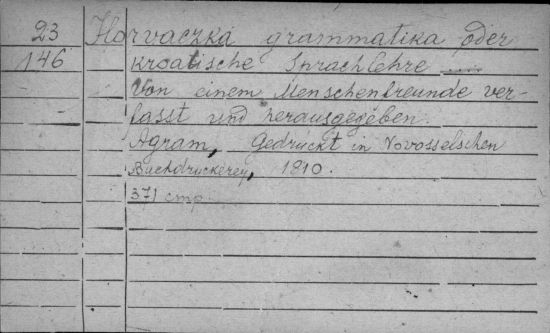 23 Horvaczka grammatika oder
146 kroatische Sprachlehre .....
Von einem Menschenfreunde ver-
fasst und herausgegeben.
Agram, Gedruckt in Novosselschen
Buchdruckerey, 1810.
371 cmp.